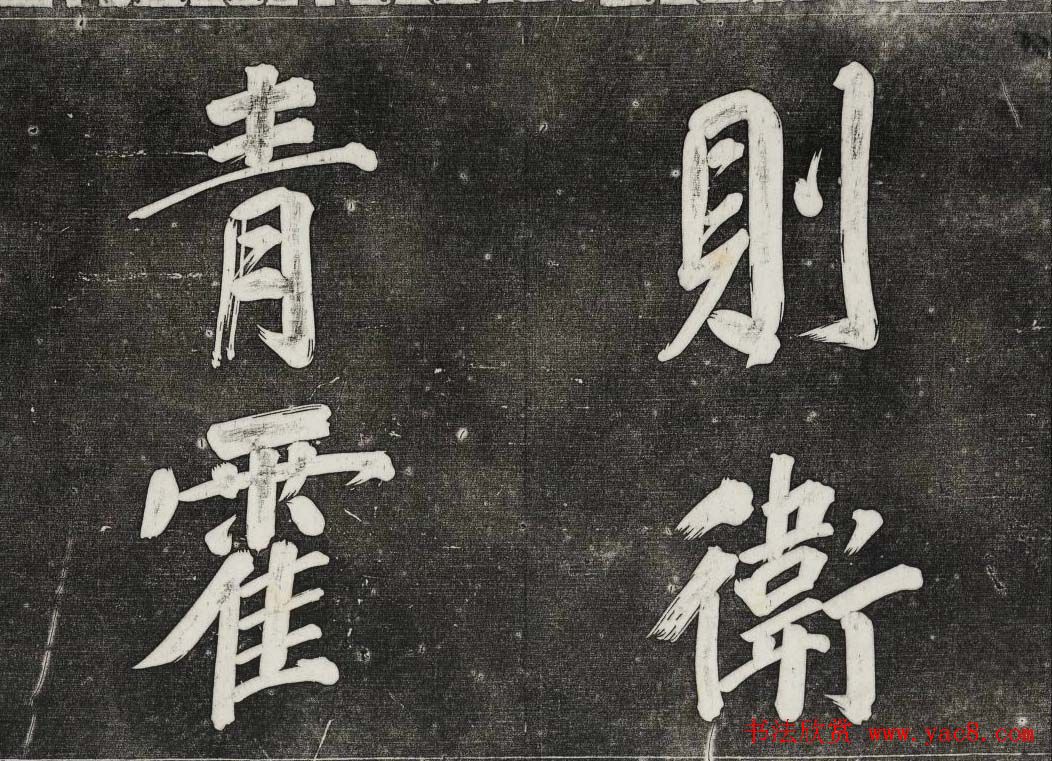 則衛
青霍
书法欣赏 www.yac8.com